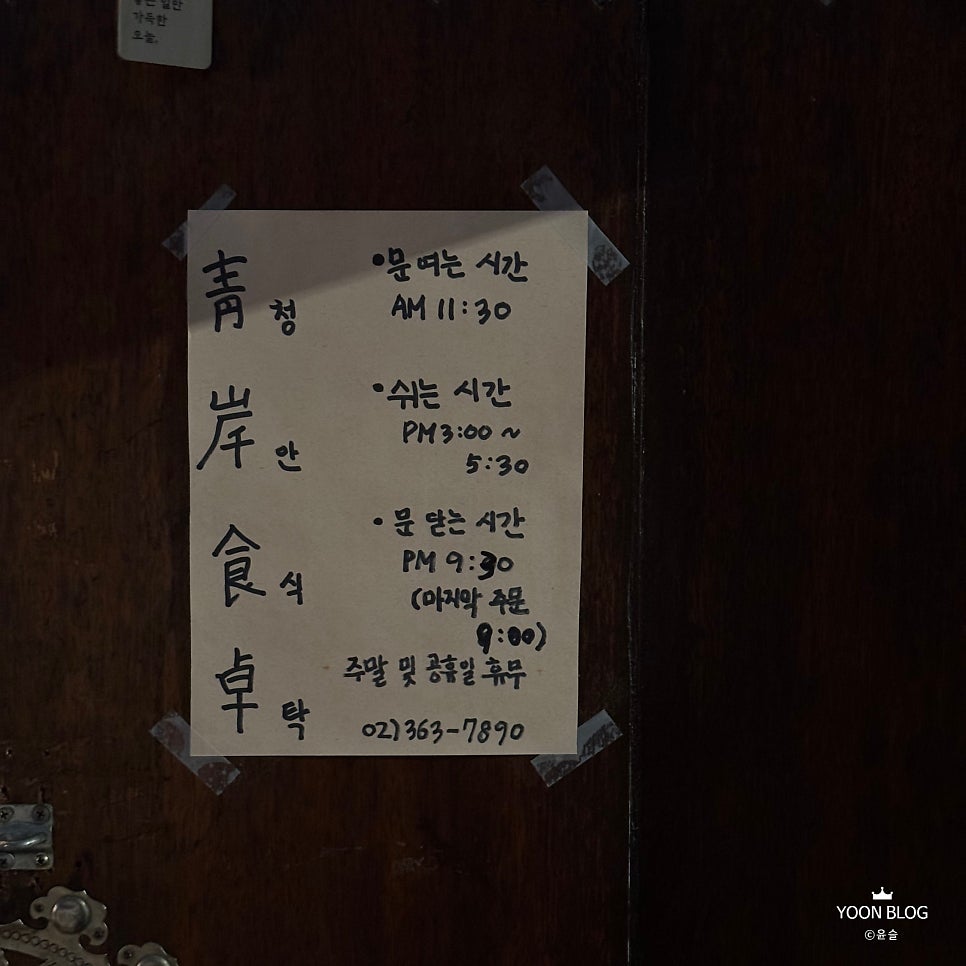 가득한
오늘,
靑 청
岸 안
食 식
卓 탁
•문 여는 시간
AM 11:30
•쉬는 시간
PM 3:00 ~
5:30
•문 닫는 시간
PM 9:30
(마지막 주문
9:00)
주말 및 공휴일 휴무
02)363-7890
YOON BLOG
©윤슬